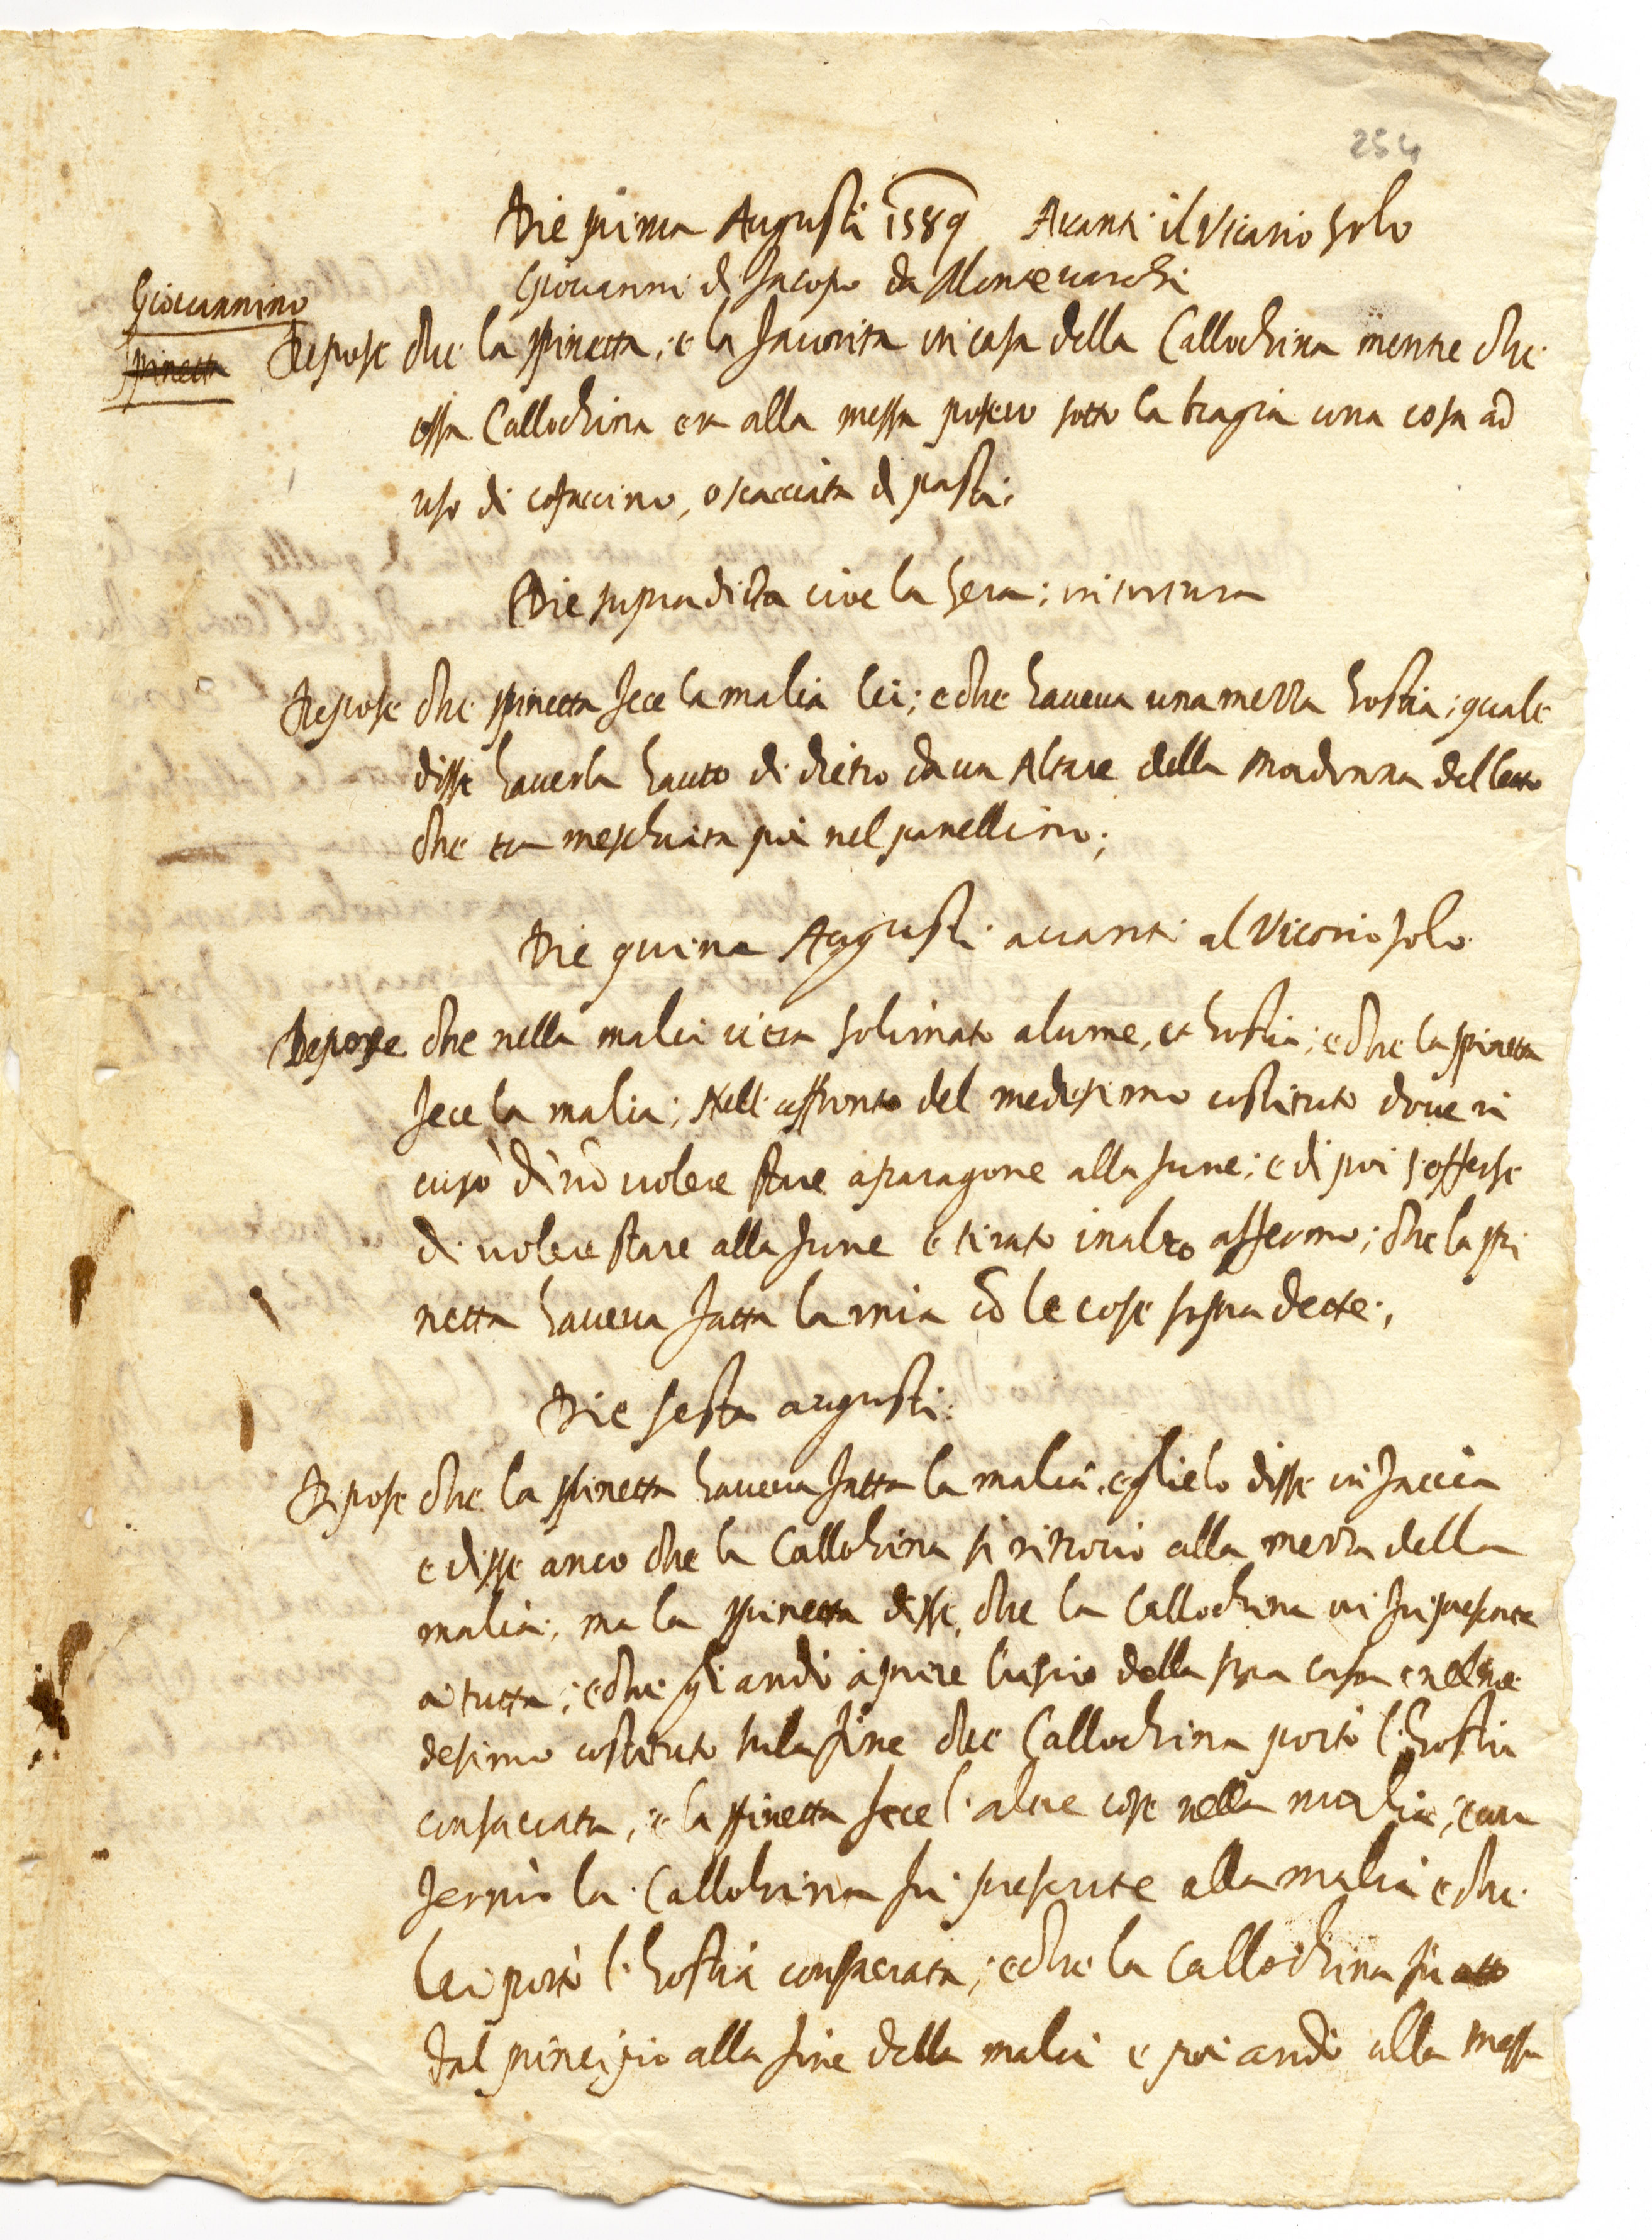 254
Die prima Augusti 1589 Avanti il Vicario solo
Giovanni di Jacopo da Montevarchi
Giovannino
Spinetta
Depose che la spinetta, e la favorita in casa della Callochina mentre che
essa Callochina era alla messa posero sotto la bragia una cosa ad
uso di cofaccino, o scacciata di pasta;
Die supradicta cioe la sera; in tortura
Depose che spinetta fece la malia lei; e che haveva una mezza hostia; quale
disse haverla hauto di dietro da un Altare della Madonna del letto
che era meschiata poi nel panellino;
Die quina Augusti avanti al Vicario solo
Depose che nella malia vi era solimato alume, et hostia; e che la spinetta
fece la malia; Nell affronto del medesimo costituto dove ri
cusò di nō volere stare a paragone alla fune; e di poi s'offerse
di volere stare alla fune e tirato in alto affermo; che la spi
netta haveva fatta la mia cō le cose sopra dette;
Die sesta augusti
Depose che la spinetta haveva fatta la malia, e glielo disse in faccia
e disse anco che la Callochina si ritrovo alla mezza della
malia; ma la spinetta disse, che la Callochina vi fu presente
a tutta; e che gli andò a aprire l'uscio della sua casa e nel me
desimo costituto sula fine che Callochina portò l'hostia
consacrata, e la spinetta fece l'altre cose nella malia; e con
fermò la Callochina fu presente alla malia e che
lei portò l'hostia consacrata; e che la Callochina fu
dal principio alla fine della malia e poi andò alla messa